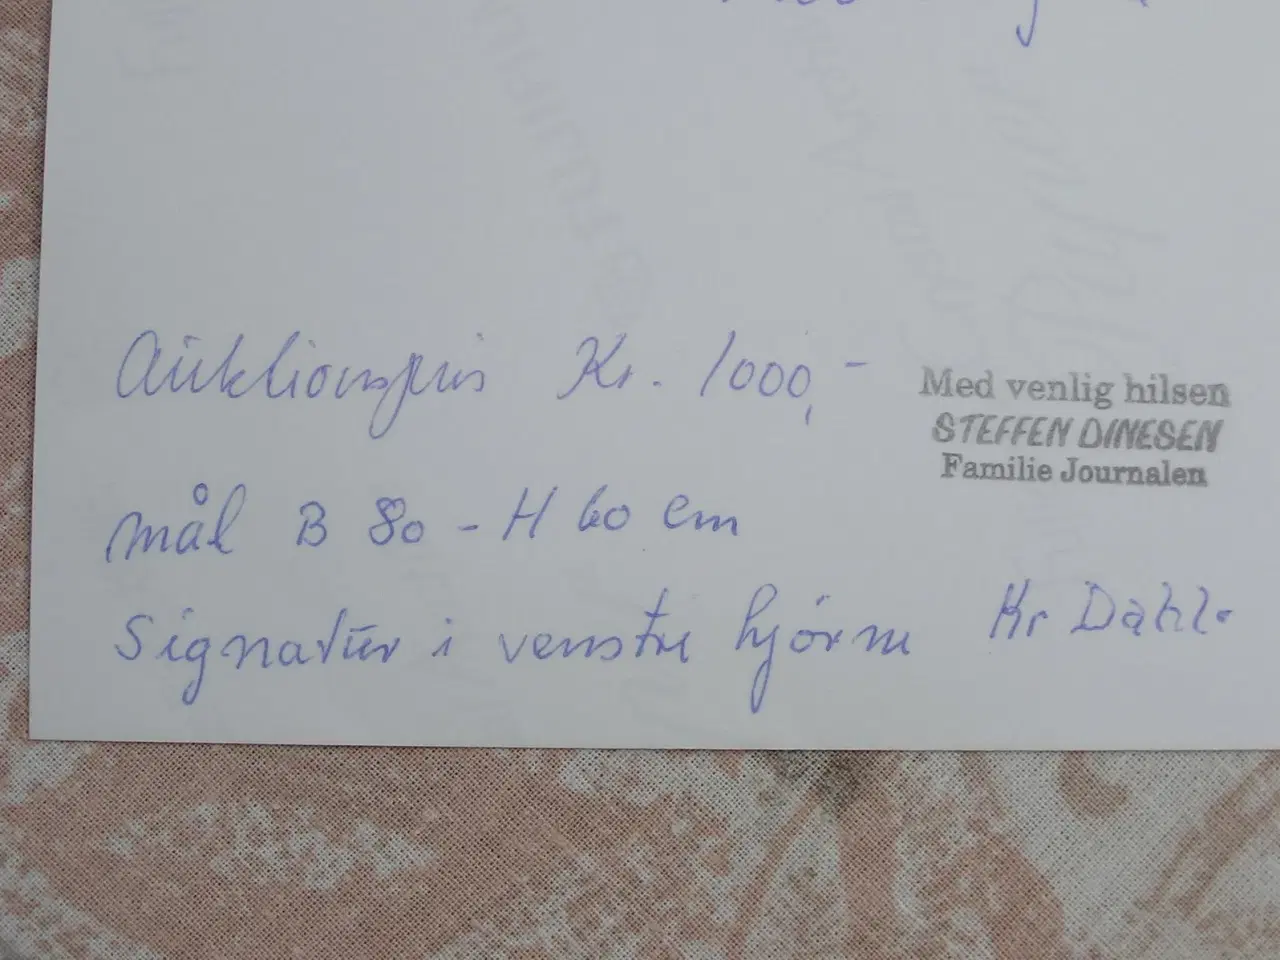 Auktionspris Kr. 1000,-
Med venlig hilsen
STEFFEN DINESEN
Familie Journalen
mål B 80 - H 60 cm
Signatur i venstre hjørne Kr Dahl